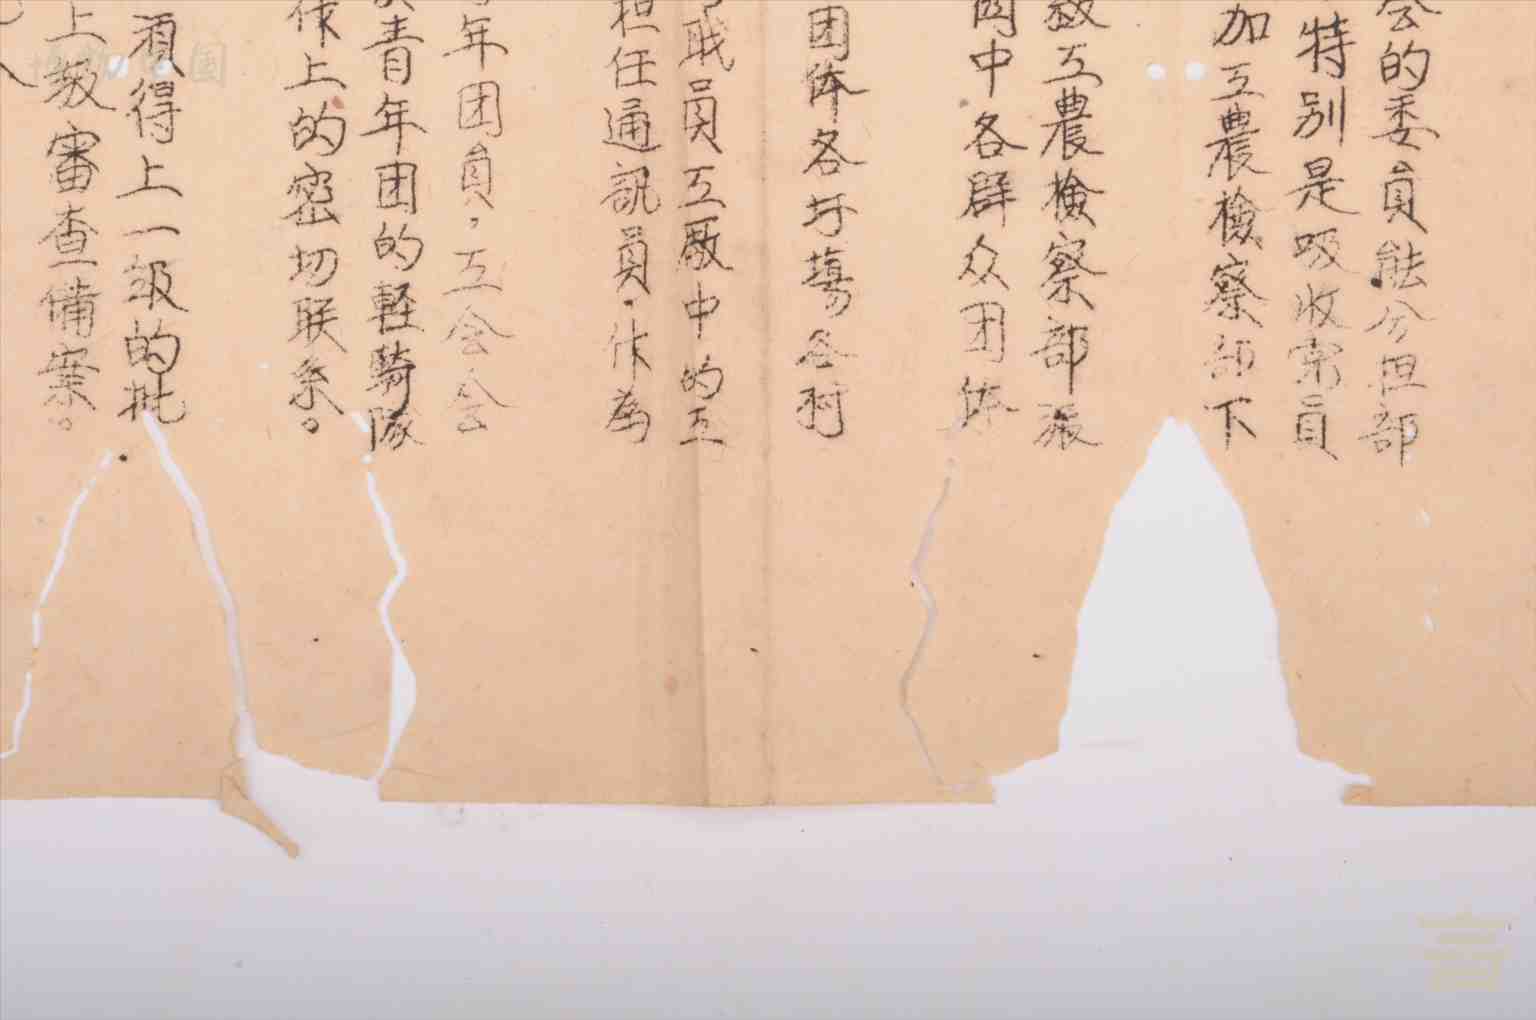 会的委員能分担部
特别是吸收家員
加工農檢察部下
数工農檢察部派
関中各群众团体
团体各圩場各村
职員工廠中的工
担任通訊員，作為
年团員，工会会
青年团的軽騎隊
作上的密切联系。
須得上一級的批
上級審查備案。